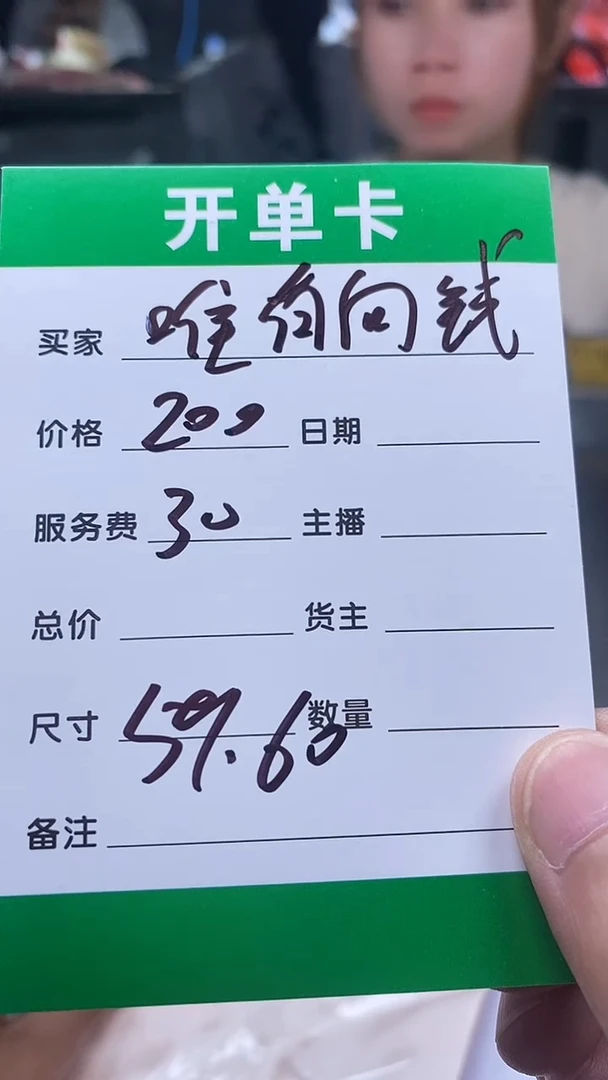 开单卡
买家 唯有向钱
价格 200 日期
服务费 30 主播
总价 货主
尺寸 59.60 数量
备注